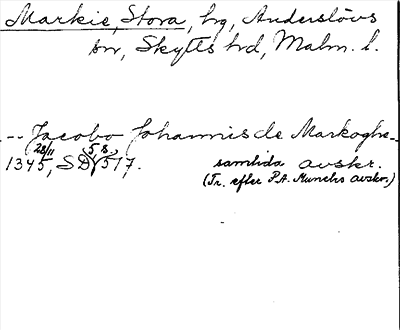 Markie, Stora, by, Anderslövs
sn, Skytts hd, Malm. l.
-- Jacobo Johannis de Markoghe --
(28/11 5 s.)
1345, SD V 517. samtida avskr.
(Tr. efter P.A. Munchs avskr.)